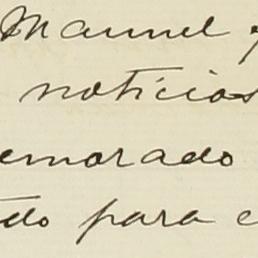 Manuel
noticias
emorado
do para